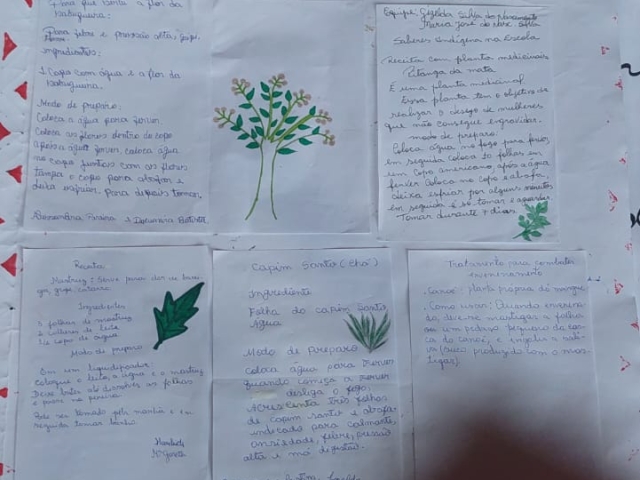 flor da
Para febre e pressão alta, gripe
Ingredientes:
1 Copo com água e a flor da
Modo de preparo:
Coloca a água para ferver
Coloca as flores dentro do copo
Apois a água ferver, coloca água
no copo juntos com as flores
tampa o copo para abafar e
deixa esfriar, para depois tomar.
Equipe: Gizelda Silva do
Maria José da Silva
Saberes indígena na Escola
Receita com planta medicinais
Pitanga da mata
É uma planta medicinal
Essa planta tem o objetivo de
realizar o desejo de mulheres
que não consegue engravidar.
modo de preparo:
Coloca água no fogo para ferver,
em seguida coloca 10 folhas em
um copo americano, após a água
ferver coloca no copo e abafa,
deixa esfriar por alguns minutos
em seguida é só tomar e aguardar
Tomar durante 7 dias
Receita
Mastruz: Serve para dor de barri
ga, gripe catarro.
Ingredientes
3 folhas de mastruz
2 colheres de leite
1/2 copo de água
Modo de preparo
Em um liquidificador
coloque o leite, a água e o mastruz
Deixe bater até dissolver as folhas
e passe na peneira
Pode ser tomado pela manhã e em
seguida tomar banho.
Capim Santo (chá)
Ingrediente
Folha do capim Santo
Água
Modo de Preparo
coloca água para ferver
quando começa a ferver
desliga o fogo.
Acrescenta três folhas
de capim santo e abafa.
indicado para calmante,
ansiedade, febre, pressão
alta e má digestão.
Tratamento para combater
envenenamento
planta propria do mangue
Como usar: Quando envenena
do deve-se mastigar a folha
ou um pedaço pequeno da cas
ca do e engolir a sali-
va (suco produzido com o mas-
tigar)